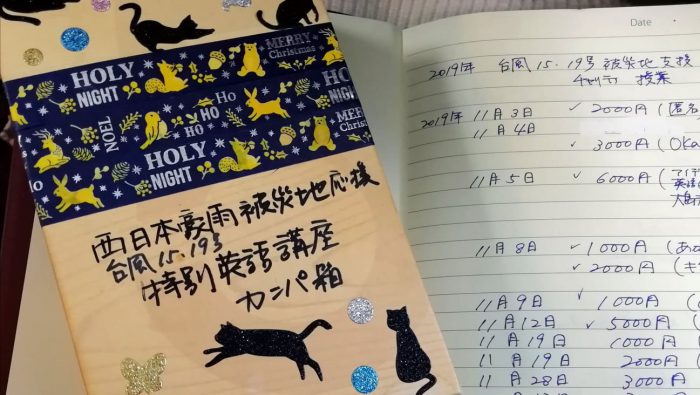 MERRY
Christmas
HOLY
NIGHT
NOEL
Ho
HO
HO
HOLY
NIGHT
HOLY
NIGHT
MERRY
Christmas
西日本豪雨被災地応援
台風15.19号
特別英語講座
カンパ箱
Date
2019年 台風15.19号 被災地支援
チャリティ 授業
2019年 11月3日 ✓ 2000円 (匿名
11月4日
✓ 3000円 (Oka
11月5日 ✓ 6000円 (
11月8日 ✓ 1000円 (あ
✓ 2000円 (キ
11月9日 ✓ 1000円 (
11月12日 ✓ 5000円 (
11月19日 1000円 (
11月19日 2000円 (
11月28日 3000円